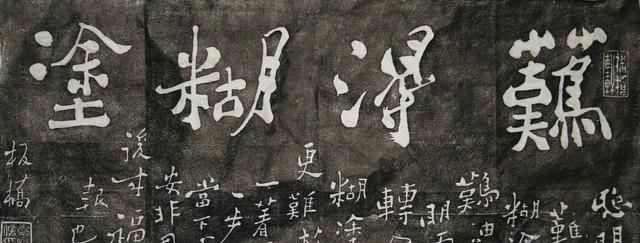 難得糊塗
聰明
難
糊
難由
明而
轉
糊塗
更難放
一著
一步
當下
安非
後来福
報也
板橋